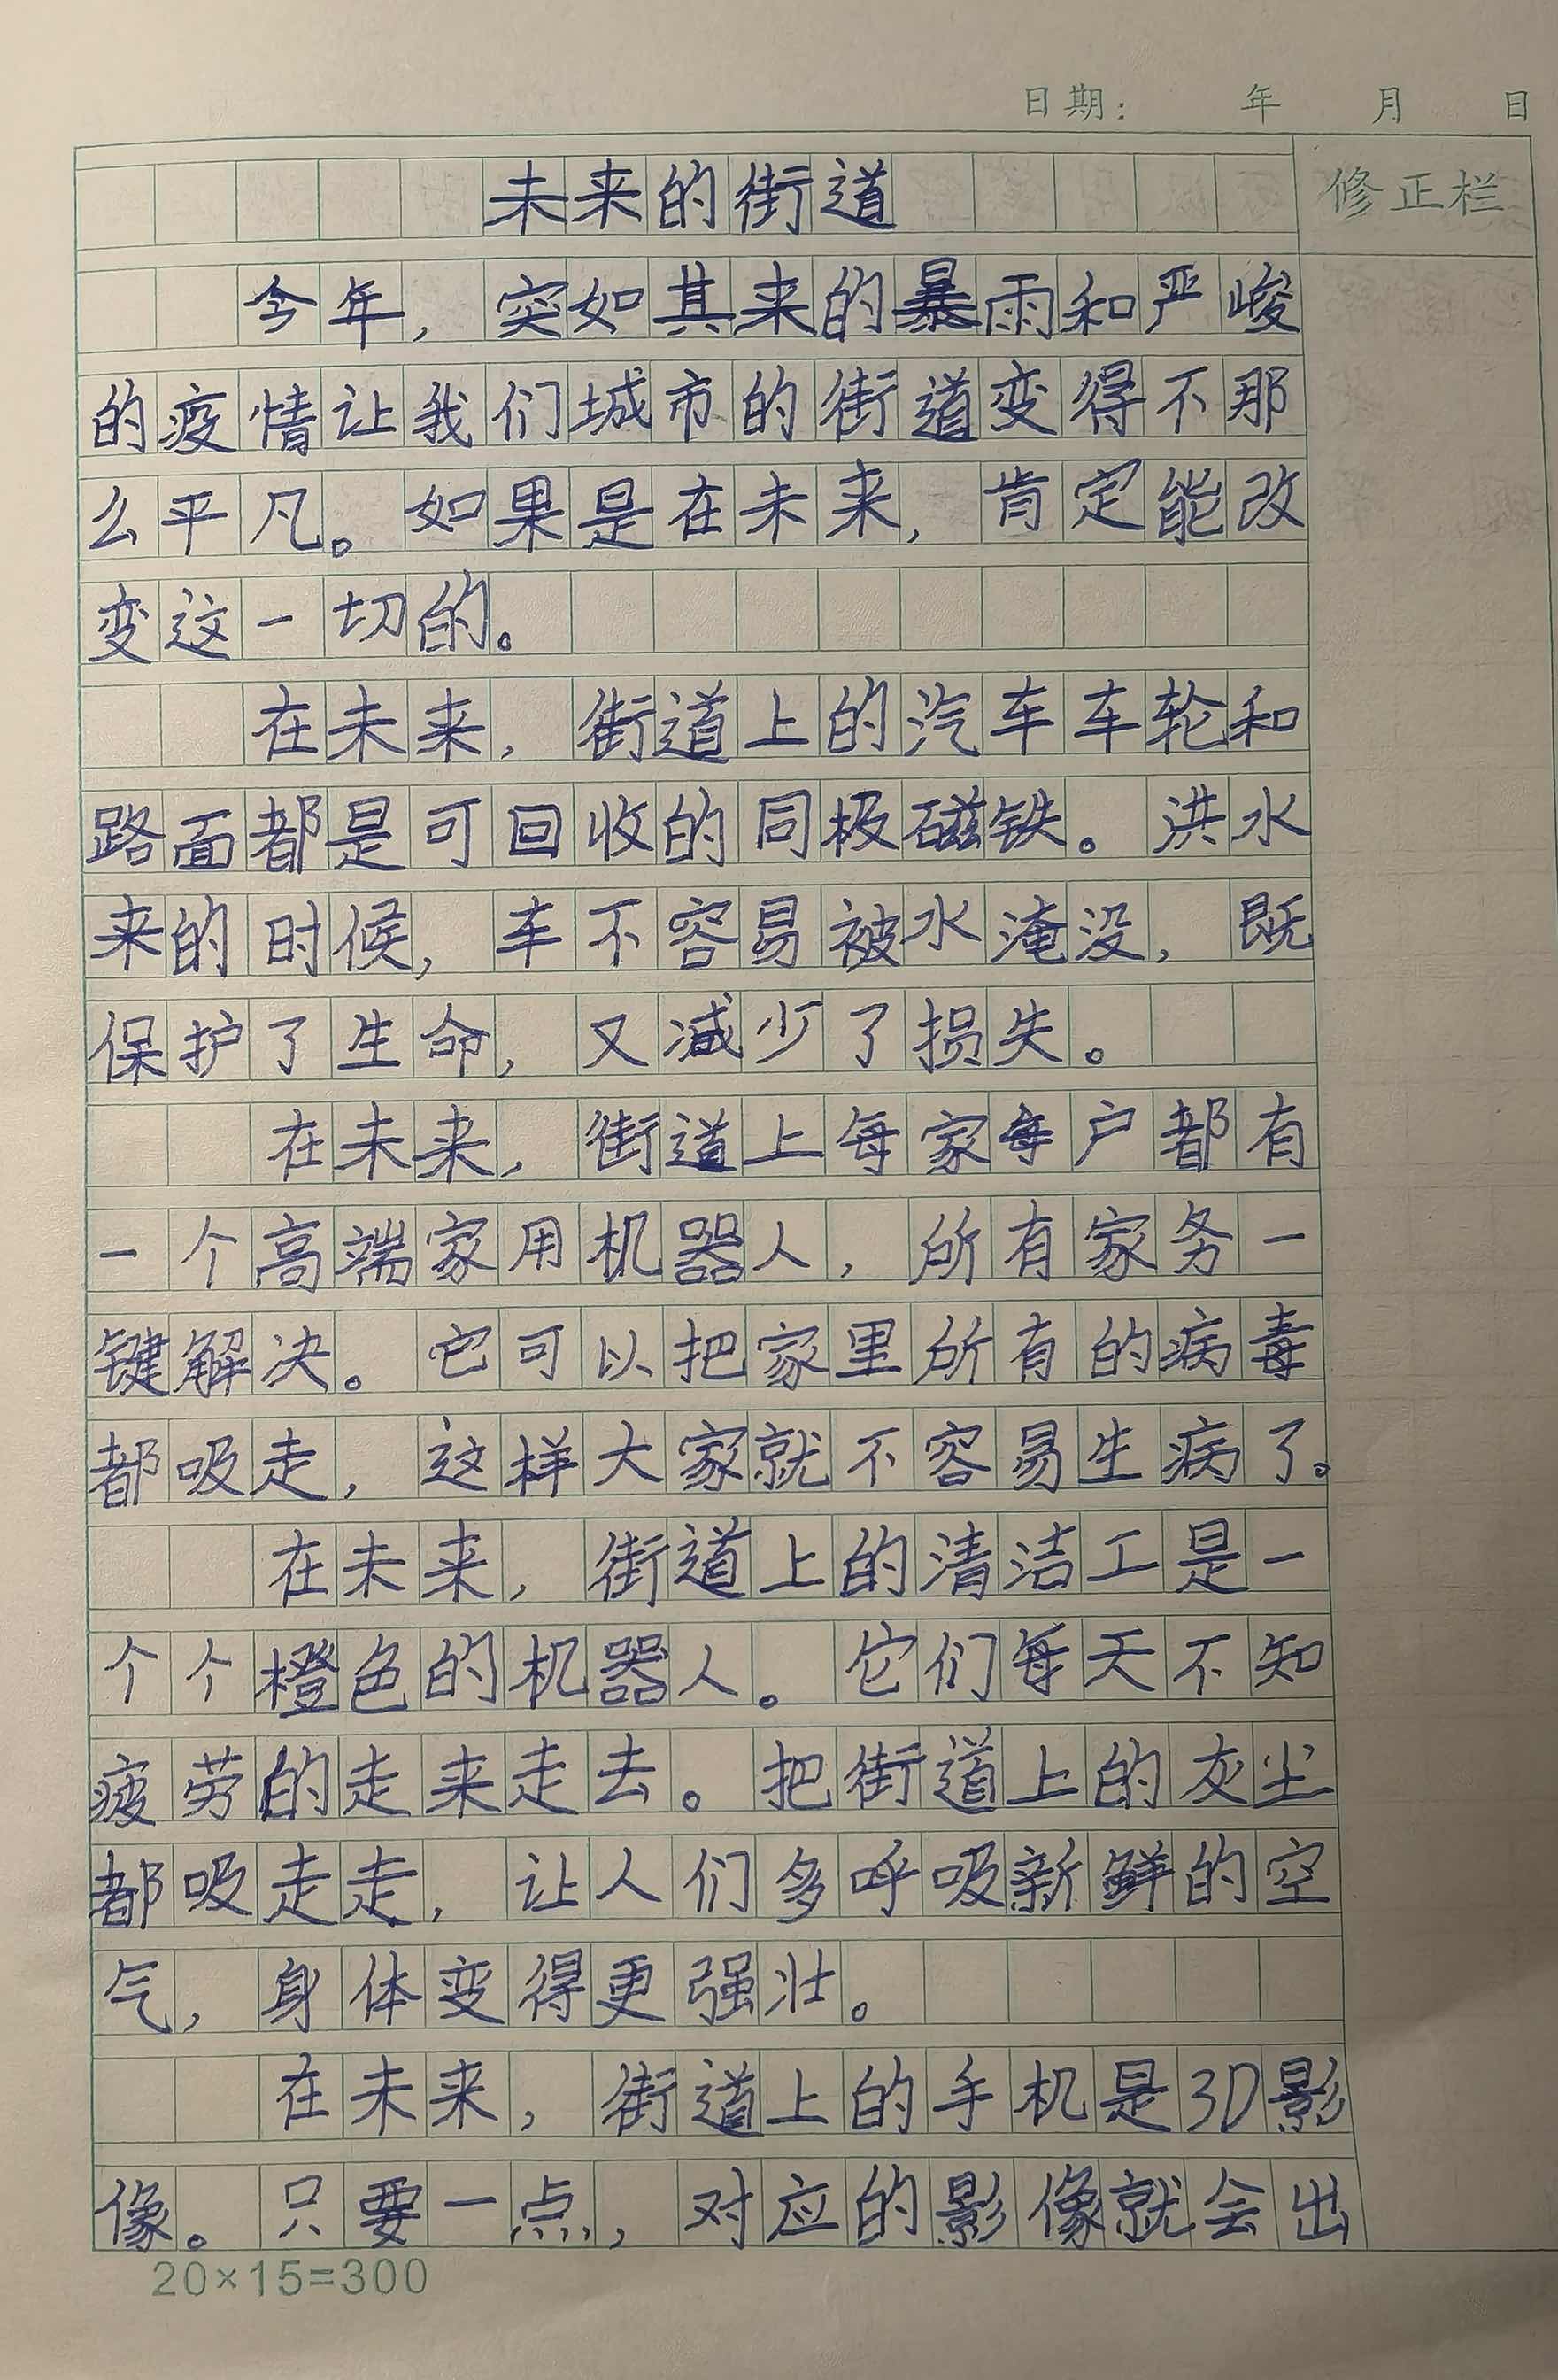 日期： 年 月 日
未来的街道
修正栏
今年，突如其来的暴雨和严峻
的疫情让我们城市的街道变得不那
么平凡。如果是在未来，肯定能改
变这一切的。
在未来，街道上的汽车车轮和
路面都是可回收的同极磁铁。洪水
来的时候，车不容易被水淹没，既
保护了生命，又减少了损失。
在未来，街道上每家每户都有
一个高端家用机器人，所有家务一
键解决。它可以把家里所有的病毒
都吸走，这样大家就不容易生病了。
在未来，街道上的清洁工是一
个个橙色的机器人。它们每天不知
疲劳的走来走去。把街道上的灰尘
都吸走走，让人们多呼吸新鲜的空
气，身体变得更强壮。
在未来，街道上的手机是3D影
像。只要一点，对应的影像就会出
20×15=300